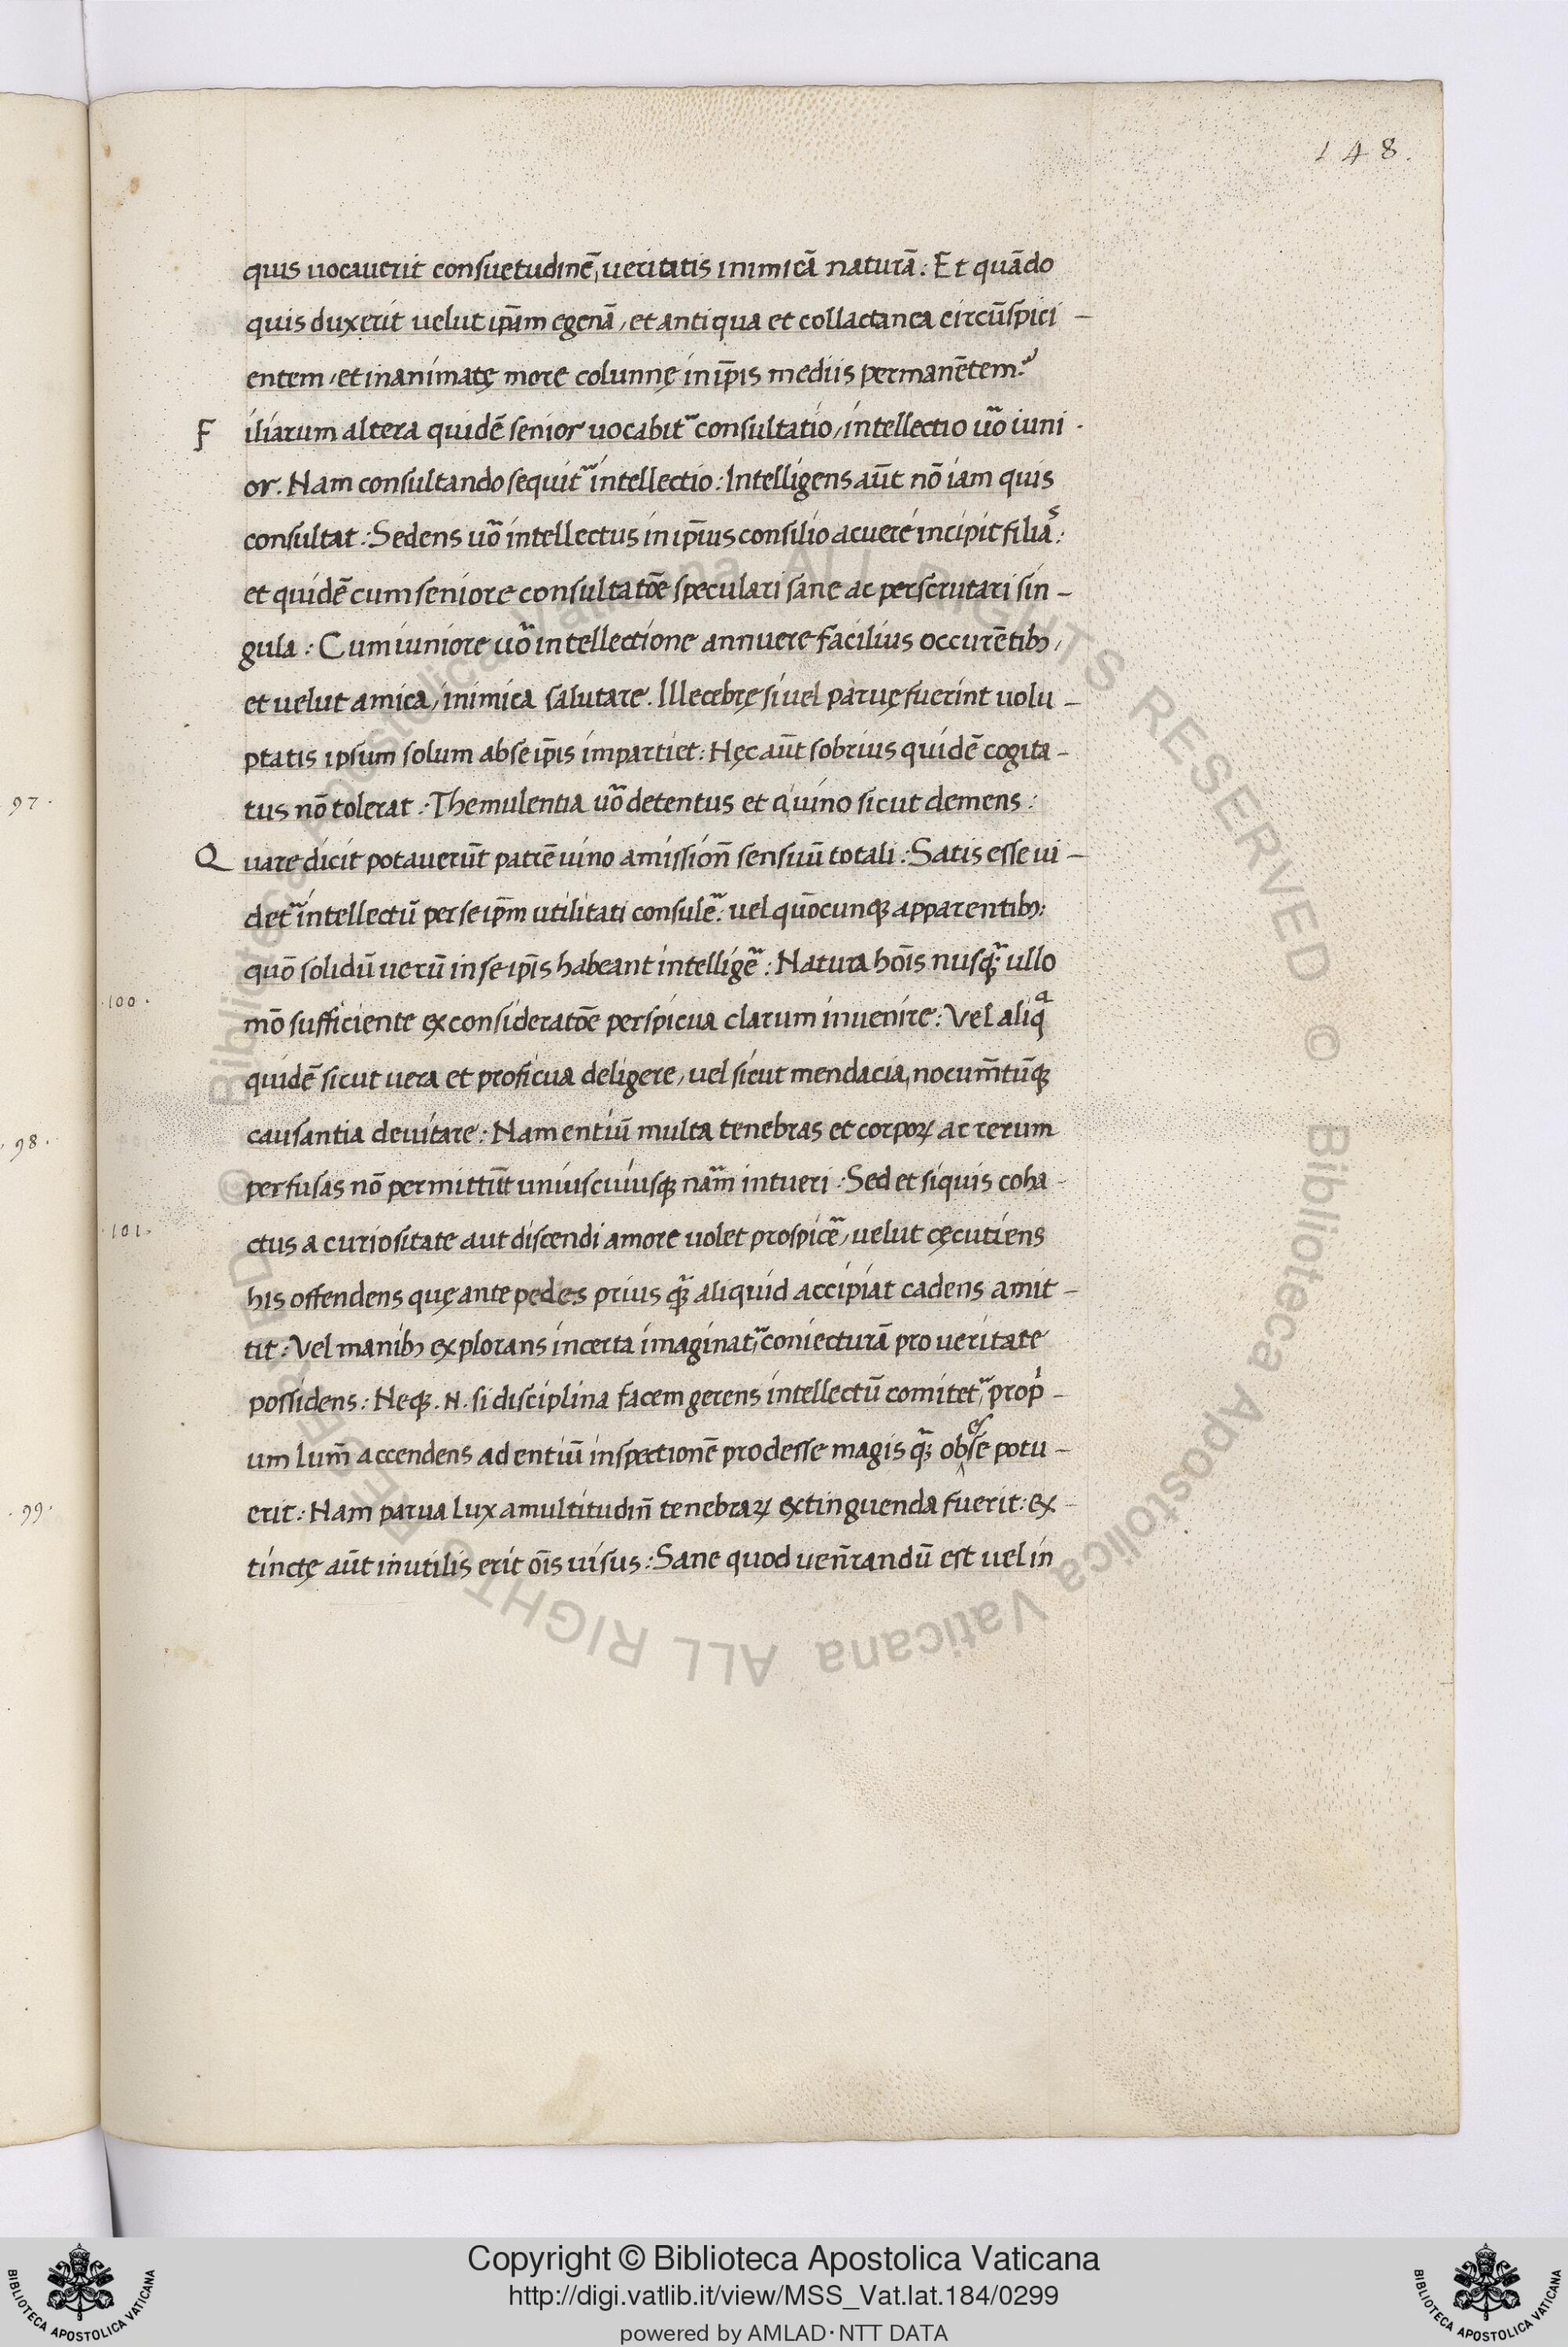 148.
quis uocauerit consuetudinē, ueritatis inimicā naturā : Et quādo
quis duxerit uelut ip̄am egenā, et antiqua et collactanea circūspici -
entem, et inanimatę more colunnę in ip̄is mediis permanētem?
F iliarum altera quidē senior uocabit᷑ consultatio, intellectio uo᷑ iuni -
or. Nam consultando sequit᷑ intellectio : Intelligens aūt nō iam quis
consultat : Sedens uo᷑ intellectus in ip̄ius consilio acuere incipit filiaˢ :
et quidē cum seniore consultatōe speculari sane ac perscrutari sin -
gula : Cum iuniore uo᷑ intellectione annuere facilius occurētibꝫ,
et uelut amica, inimica salutare. Illecebrę si uel paruę fuerint uolu -
ptatis ipsum solum ab se ip̄is impartiet : Hęc aūt sobrius quidē cogita -
tus nō tolerat : Themulentia uo᷑ detentus et a uino sicut demens :
97.
Q uare dicit potauerūt patrē uino amission̄ sensuū totali : Satis esse ui -
det᷑ intellectū per se ip̄m utilitati consule᷑ : uel quōcunqꝫ apparentibꝫ :
quō solidū uerū in se ip̄is habeant intellige᷑ : Natura hōis nusqꝫ᷑ ullo
.100.
mō sufficiente ex consideratōe perspicua clarum inuenire : Vel aliqᵃ
quidē sicut uera et proficua deligere, uel sicut mendacia, nocum̄tūqꝫ
causantia deuitare : Nam entiū multa tenebras et corporꝝ ac rerum
98.
perfusas nō permittūt uniuscuiusqꝫ nam᷑ intueri : Sed et siquis coha -
.101.
ctus a curiositate aut discendi amore uolet prospice᷑, uelut cęcutiens
his offendens quę ante pedes prius qꝫ᷑ aliquid accipiat cadens amit -
tit : Vel manibꝫ explorans incerta imaginat᷑, coniecturā pro ueritate
possidens : Neqꝫ .N. si disciplina facem gerens intellectū comitet᷑, propⁱ -
um lum̄ accendens ad entiū inspectionē prodesse magis qꝫ᷑ obesse potu -
erit : Nam parua lux a multitudin̄ tenebraꝝ extinguenda fuerit : ex -
.99.
tinctę aūt inutilis erit ōis uisus : Sane quod uen̄randū est uel in
Copyright © Biblioteca Apostolica Vaticana
http://digi.vatlib.it/view/MSS_Vat.lat.184/0299
powered by AMLAD·NTT DATA
BIBLIOTECA APOSTOLICA VATICANA
BIBLIOTECA APOSTOLICA VATICANA